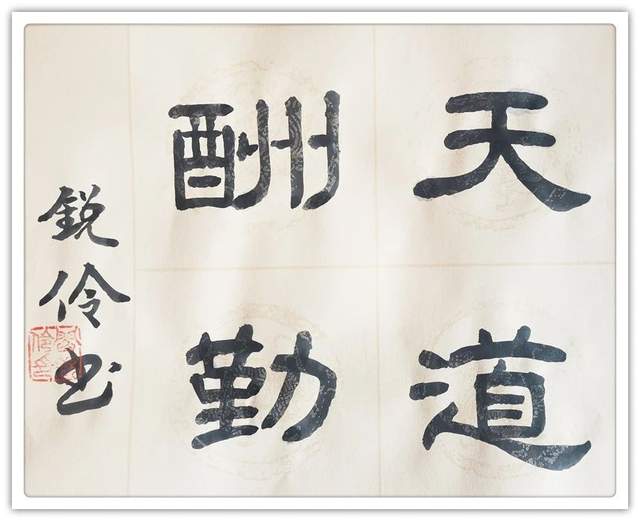 天道
酬勤
锐伶书